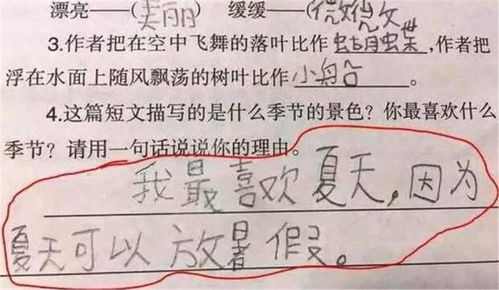 漂亮——(美丽) 缓缓——(慢慢)
3.作者把在空中飞舞的落叶比作蝴蝶,作者把
浮在水面上随风飘荡的树叶比作小船。
4.这篇短文描写的是什么季节的景色?你最喜欢什么
季节?请用一句话说说你的理由。
我最喜欢夏天,因为
夏天可以放暑假。